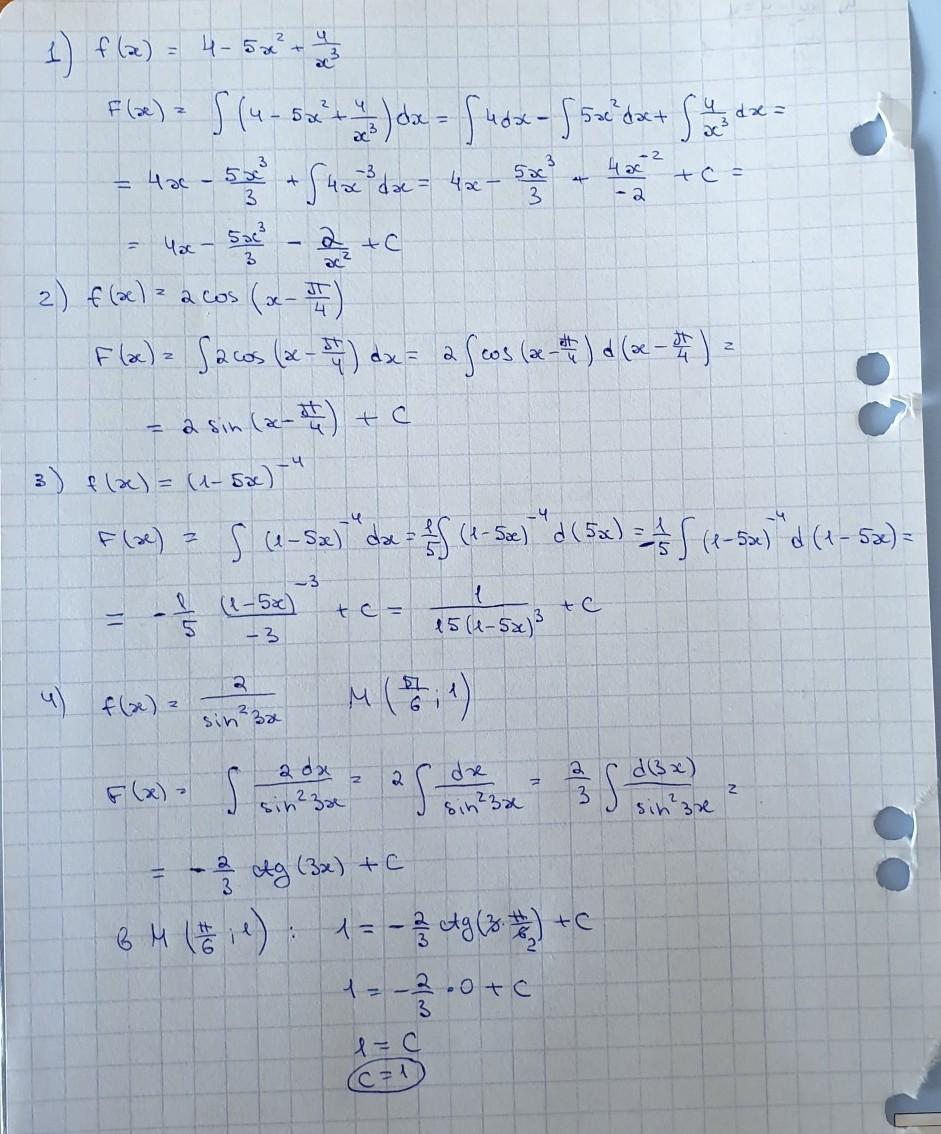 1) f(x) = 4 - 5x² + 4/x³
F(x) = ∫(4 - 5x² + 4/x³)dx = ∫4dx - ∫5x²dx + ∫4/x³ dx =
= 4x - 5x³/3 + ∫4x⁻³dx = 4x - 5x³/3 + 4x⁻²/-2 + C =
= 4x - 5x³/3 - 2/x² + C
2) f(x) = 2 cos (x - π/4)
F(x) = ∫2cos (x - π/4) dx = 2∫cos (x - π/4) d(x - π/4) =
= 2 sin (x - π/4) + C
3) f(x) = (1-5x)⁻⁴
F(x) = ∫ (1-5x)⁻⁴ dx = 1/5 ∫ (1-5x)⁻⁴ d(5x) = -1/5 ∫ (1-5x)⁻⁴ d(1-5x) =
= - 1/5 (1-5x)⁻³/-3 + C = 1/15(1-5x)³ + C
4) f(x) = 2/sin²3x M (π/6 ; 1)
F(x) = ∫ 2dx/sin²3x = 2∫ dx/sin²3x = 2/3 ∫ d(3x)/sin²3x =
= - 2/3 ctg (3x) + C
в M (π/6 ; 1) : 1 = - 2/3 ctg(3·π/6 2) + C
1 = - 2/3 · 0 + C
1 = C
C = 1